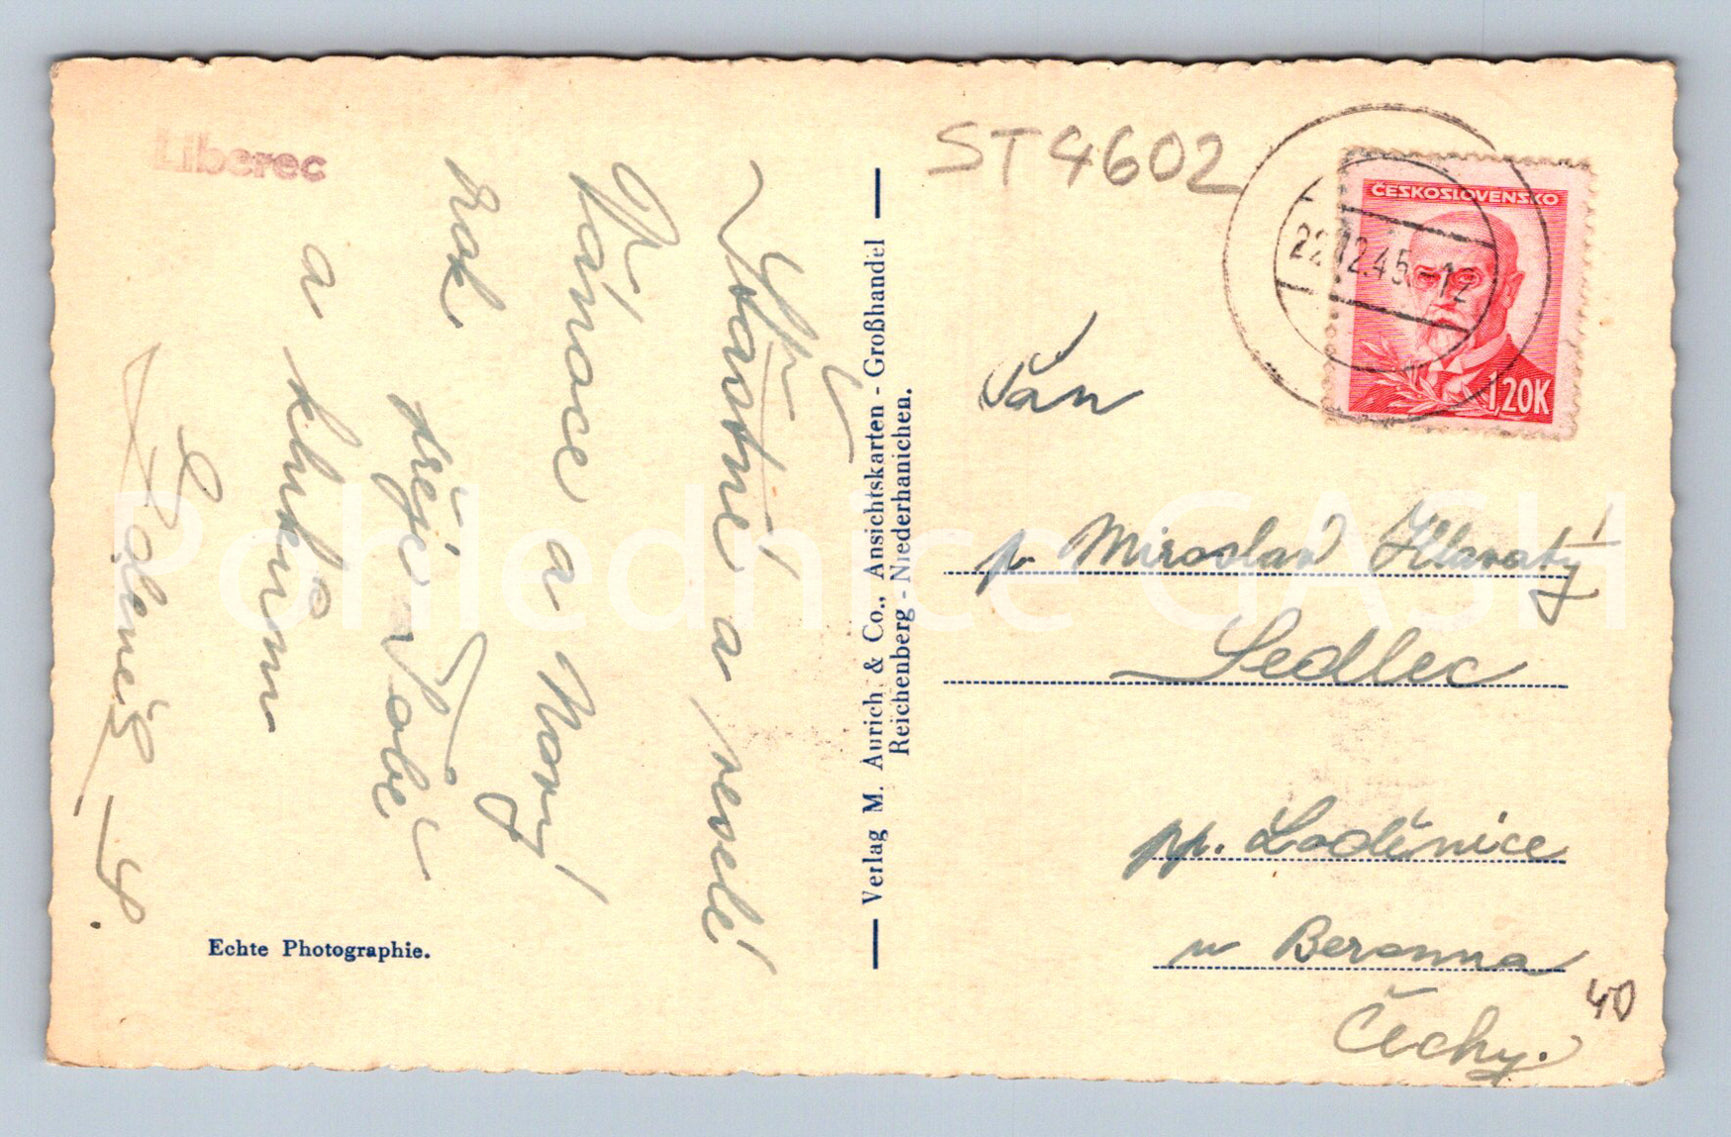 Liberec
Šťastné a veselé
Vánoce a Nový
rok. přeje Tobě
a
Echte Photographie.
Verlag M. Aurich & Co., Ansichtskarten - Großhandel
Reichenberg - Niederhanichen.
ST4602
ČESKOSLOVENSKO
22.12.45-12
1,20K
Pán
p. Miroslav Hlavatý
Sedlec
pp. Loděnice
u Berouna
Čechy.
40
Pohlednice GASH